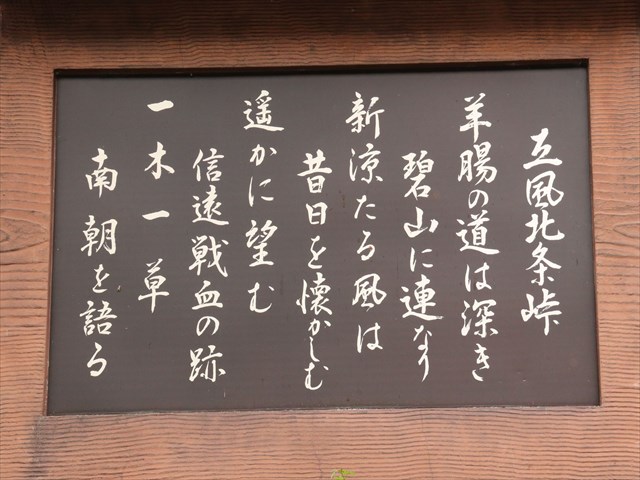 立風北条峠
羊腸の道は深き
碧山に連なり
新涼たる風は
昔日を懐かしむ
遥かに望む
信遠戦血の跡
一木一草
南朝を語る